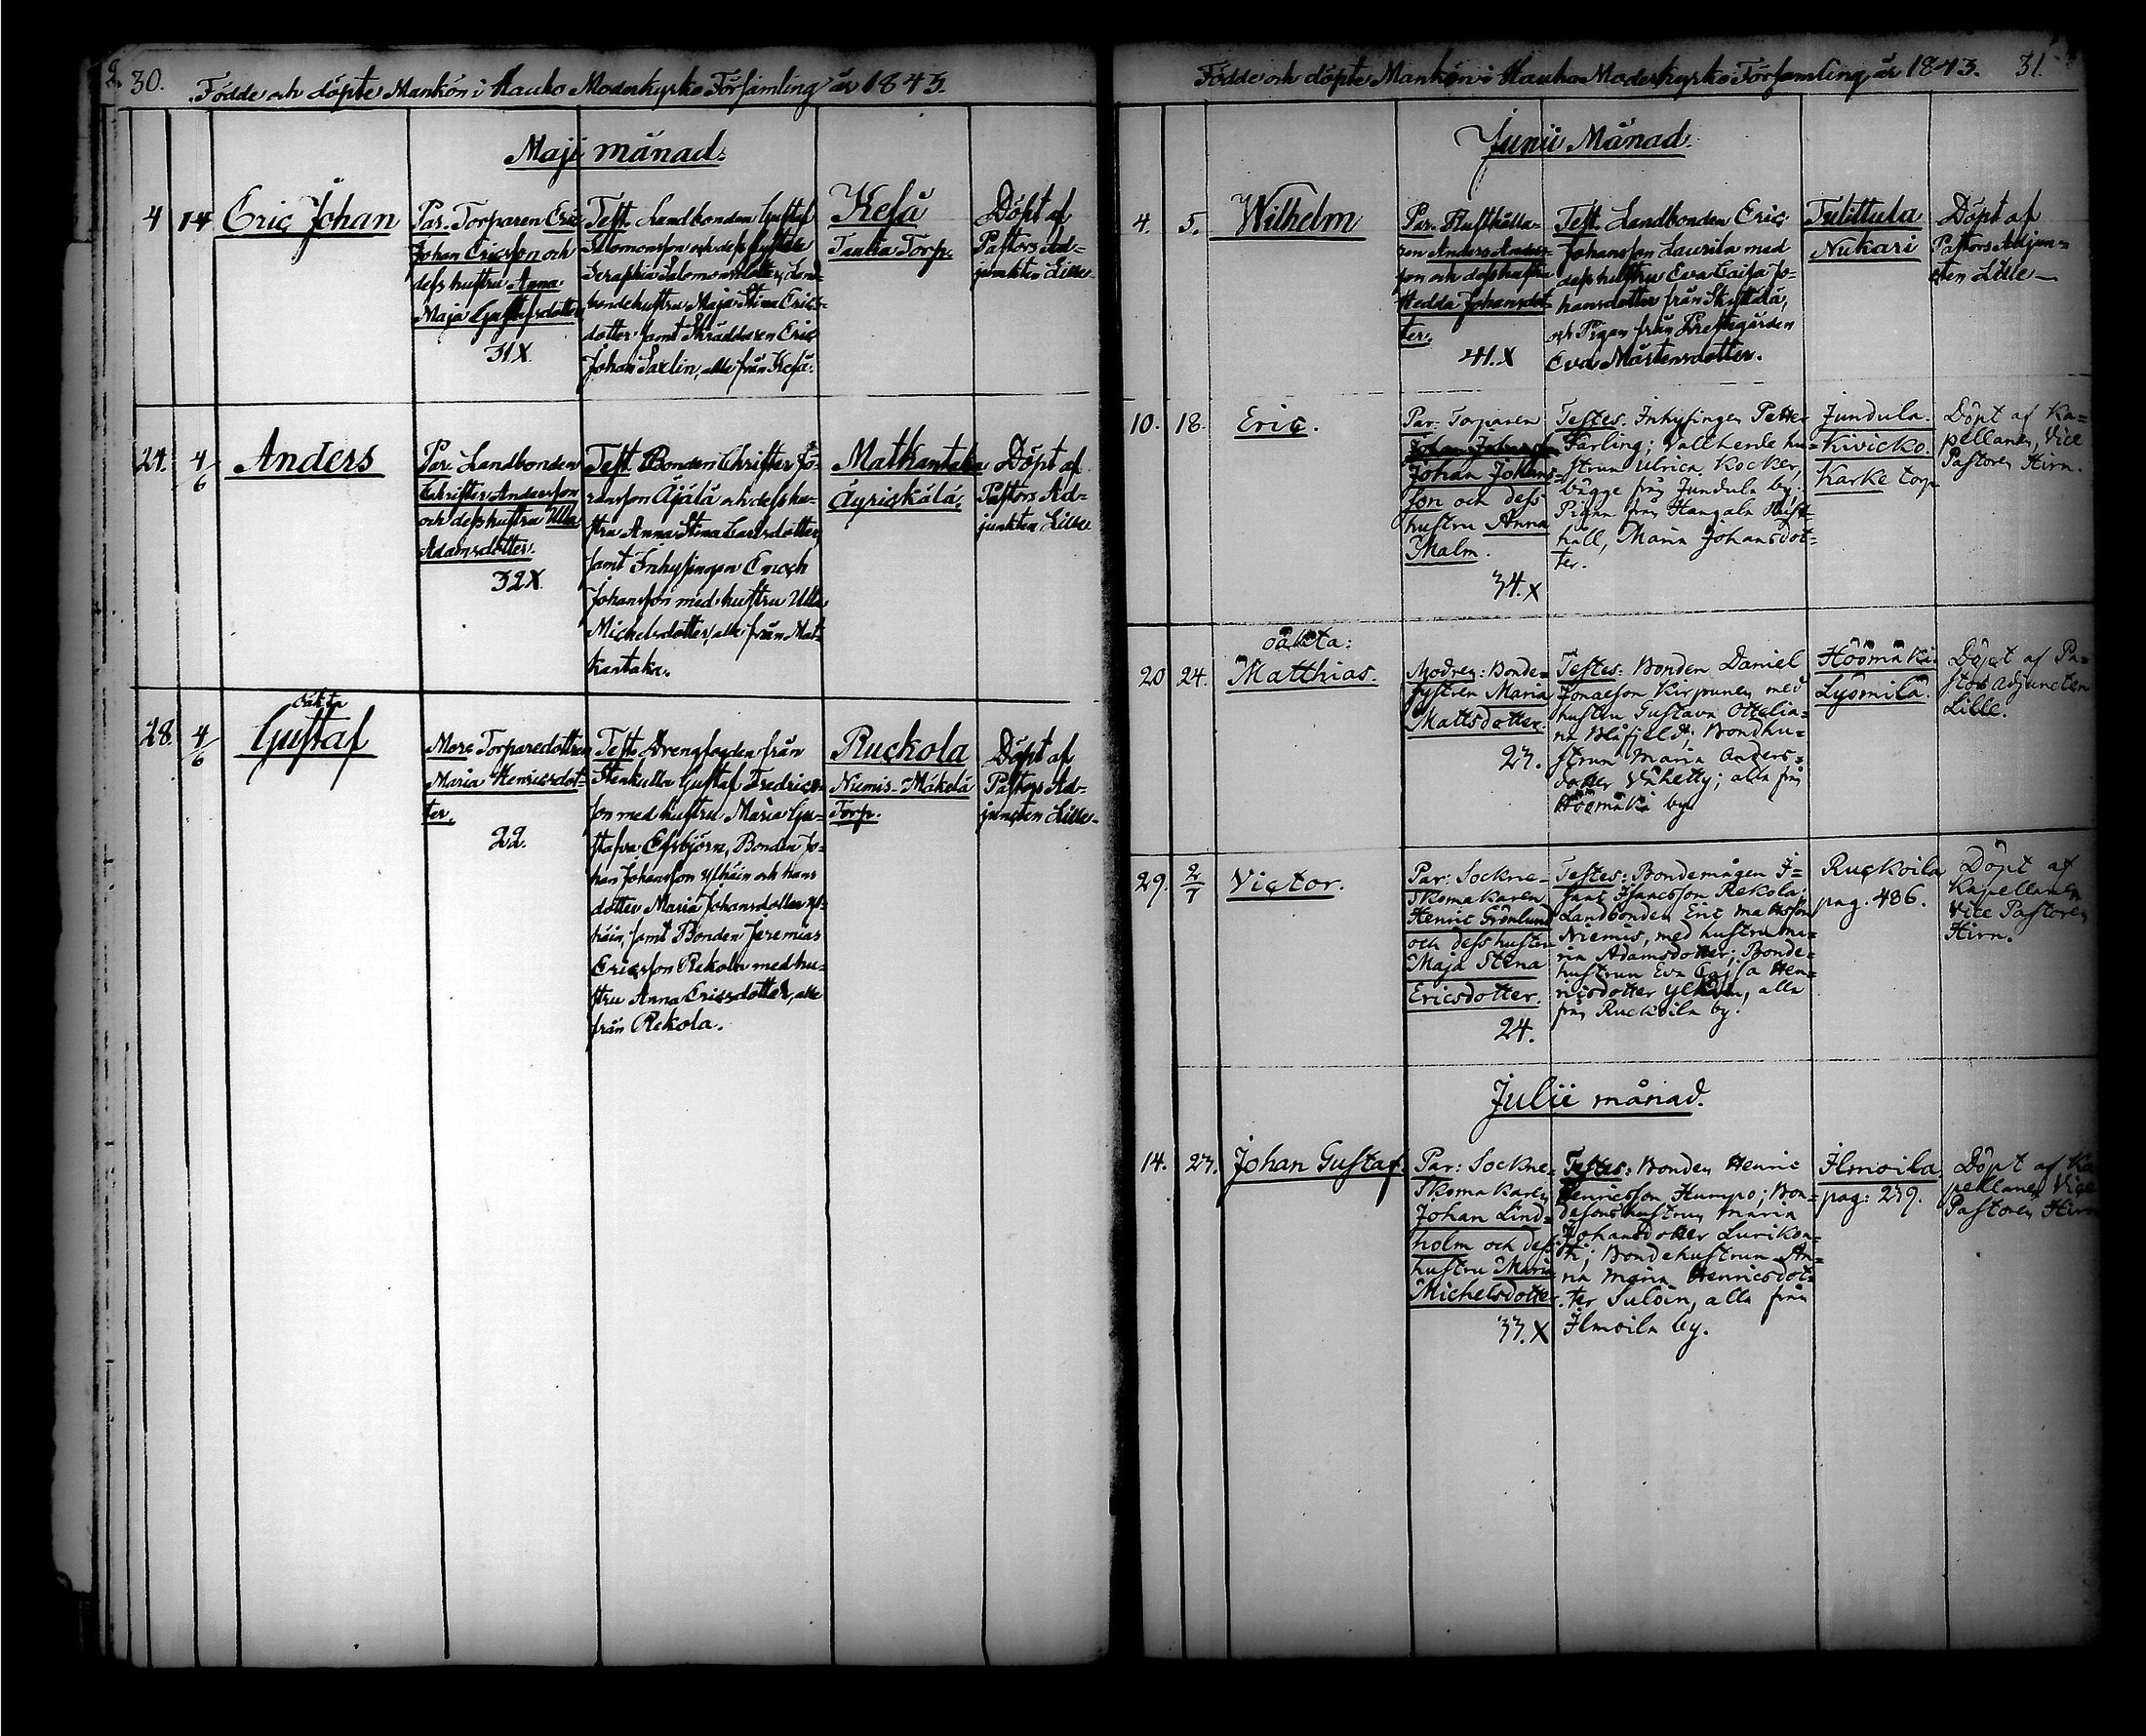 30.
Födde och döpte Mankön i Hauho Moderkyrko Församling år 1843.
Maji månad.
4 14 Eric Johan
Par. Torparen Eric
Johan Ericsson och
dess hustru Anna
Maja Gustafsdotter
31 X.
Test. Landbonden Gustaf
Salomonsson och dess syster
Seraphia Salomonsdotter, Land-
bondehustru Maja Stina Erics-
dotter samt Skräddaren Eric
Johan Saxlin, alle från Kesä.
Kesä
Taulia Torp.
Döpt af
Pastors Ad-
junkten Lille.
24. 4/6 Anders
Par. Landbonden
Christer Andersson
och dess hustru Ulla
Adamsdotter.
32 X.
Test. Bonden Christer Jö-
ransson Äjälä och dess hu-
stru Anna Stina Carlsdotter,
samt Inhysingen Enoch
Johansson med hustru Ulla
Michelsdotter, alle från Mat-
kantaka.
Matkantaka
Äyriskälä.
Döpt af
Pastors Ad-
junkten Lille
28. 4/6 oäkta
Gustaf
More Torparedottren
Maria Henricsdot-
ter.
22.
Test. Drengfogden från
Stenkulla Gustaf Fredrics-
son med hustru Maria Gu-
stafva Essbjörn, Bonden Jo-
han Johansson Ylhäin och hans
dotter Maria Johansdotter Yl-
häin, samt Bonden Jeremias
Ericsson Rekola med hu-
stru Anna Ericsdotter, alle
från Rekola.
Ruckola
Niemis-Mäkelä
Torp.
Döpt af
Pastors Ad-
juncten Lille.
Födde och döpte Mankön i Hauho Moderkyrko Församling år 1843. 31.
Junii Månad.
4. 5. Wilhelm
Par. Rusthålla-
ren Anders Anders-
son och dess hustru
Hedda Johansdot-
ter.
41. X
Test. Landbonden Eric
Johansson Laurila med
dess hustru Eva Caisa Jo-
hansdotter från Skyttälä,
och Pigan från Prestgården
Eva Mårtensdotter.
Tulittula
Nukari
Döpt af
Pastors Adjun-
cten Lille
10. 18. Eric.
Par: Torparen
Johan Johansson
Johan Johans=
son och dess
hustru Anna
Malm.
34. X
Testes: Inhysingen Petter
Färling; Vallherde hu=
strun Ulrica Kocker,
bägge från Jundula by;
Pigan från Hangala Rust=
håll, Maria Johansdot=
ter.
Jundula.
Kivicko.
Karke torp
Döpt af Ka=
pellanen, Vice
Pastoren Hirn.
20 24. oäkta:
Matthias.
Modren: Bonde=
systren Maria
Mattsdotter.
23.
Testes: Bonden Daniel
Jonaeson Kirpunen med
hustru Gustava Ottelia=
na Blåfjeld; Bondhu=
strun Maria Anders=
dotter Vähetty; alla från
Höömäki by
Höömäki.
Lysmilä.
Döpt af Pa=
stors adjuncten
Lille.
29. 2/7 Victor.
Par: Sockne=
Skomakaren
Henric Grönlund
och dess hustru
Maja Stina
Ericsdotter.
24.
Testes: Bondemågen I=
sac Isacsson Rekola;
Landbonden Eric Mattsson
Niemis, med hustru Ma=
ria Adamsdotter; Bonde=
hustrun Eva Cajsa Hen=
ricsdotter , alla
från Ruckoila by.
Ruckoila
pag. 486.
Döpt af
Kapellanen
Vice Pastoren
Hirn.
Julii månad.
14. 23. Johan Gustaf.
Par: Sockne=
Skomakaren
Johan Lind=
holm och dess
hustru Maria
Michelsdotter.
33. X
Testes: Bonden Henric
Henricsson Humpo; Bon=
desonshustrun Maria
Johansdotter Lurikoa=
hi; Bondehustrun An=
na Maria Henricsdot=
ter Suloin, alla från
Ilmoila by.
Ilmoila
pag: 239.
Döpt af Ka
pellanen Vice
Pastoren Hirn